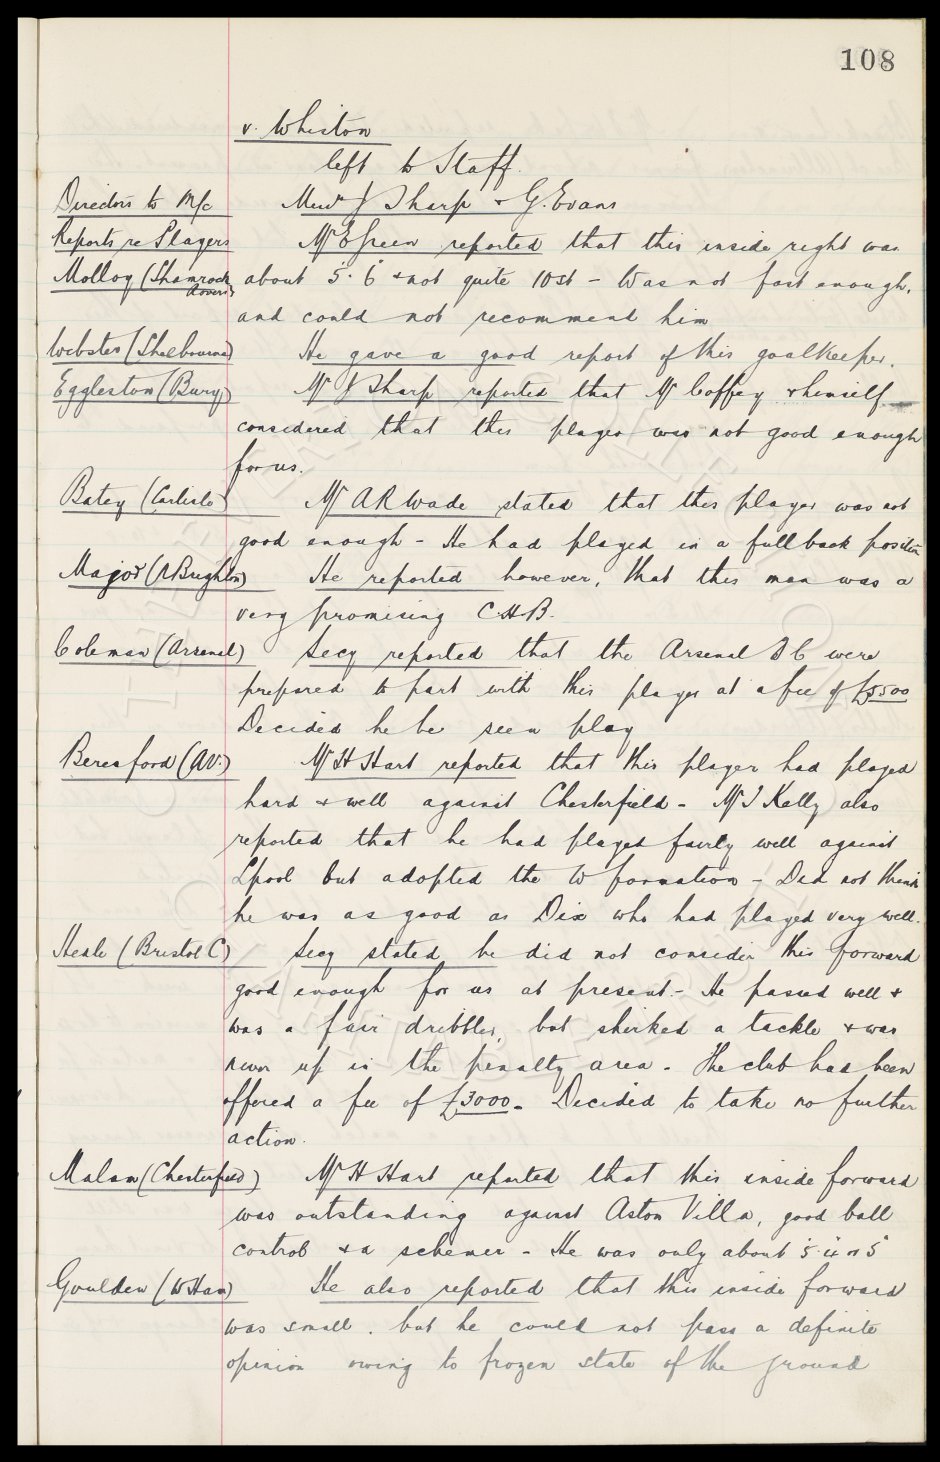 108
v. Whiston
left to Staff.
Directors to M/c Messrs J Sharp & G. Evans
Reports re Players Mr E Green reported that this inside right was
Molloy (Shamrock Rovers) about 5'. 6" & not quite 10 st - Was not fast enough,
and could not recommend him
Webster (Shelbourne) He gave a good report of this goalkeeper.
Eggleston (Bury) Mr J Sharp reported that Mr Coffey & himself
considered that this player was not good enough
for us.
Batey (Carlisle) Mr A R Wade stated that this player was not
good enough - He had played in a full back position
Major (N Brighton) He reported however, that this man was a
very promising C.H.B.
Coleman (Arsenal) Secy reported that the Arsenal F C were
prepared to part with this player at a fee of £5500
Decided he be seen play
Beresford (A V.) Mr H Hart reported that this player had played
hard & well against Chesterfield - Mr J Kelly also
reported that he had played fairly well against
Lpool but adopted the W formation - Did not think
he was as good as Dix who had played very well.
Heale (Bristol C) Secy stated he did not consider this forward
good enough for us at present. - He passed well &
was a fair dribbler, but shirked a tackle & was
never up in the penalty area. The club has been
offered a fee of £3000 - Decided to take no further
action.
Malam (Chesterfield) Mr H Hart reported that this inside forward
was outstanding against Aston Villa, good ball
control & a schemer - He was only about 5' 4 or 5"
Goulden (W Ham) He also reported that this inside forward
was small, but he could not pass a definite
opinion owing to frozen state of the ground